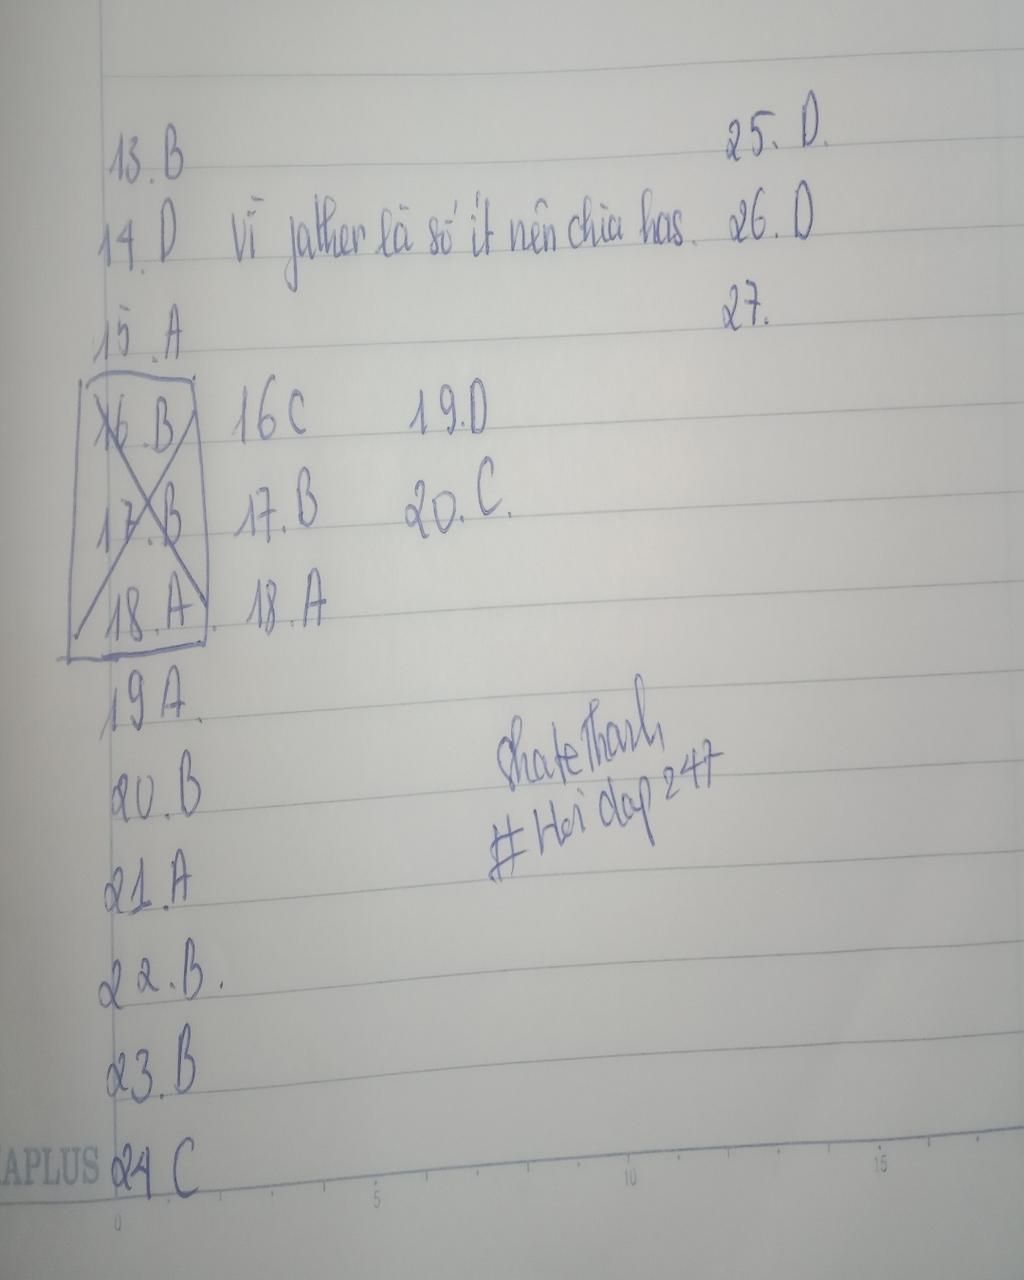 13.B
14.D Vì father là số ít nên chia has.
15.A
16.B
17.B
18.A.
16C
17.B
18.A
19.D
20.C.
19A.
20.B
21.A
22.B.
23.B
24C
25.D.
26.D
27.
#Hoidap247
APLUS
0 5 10 15